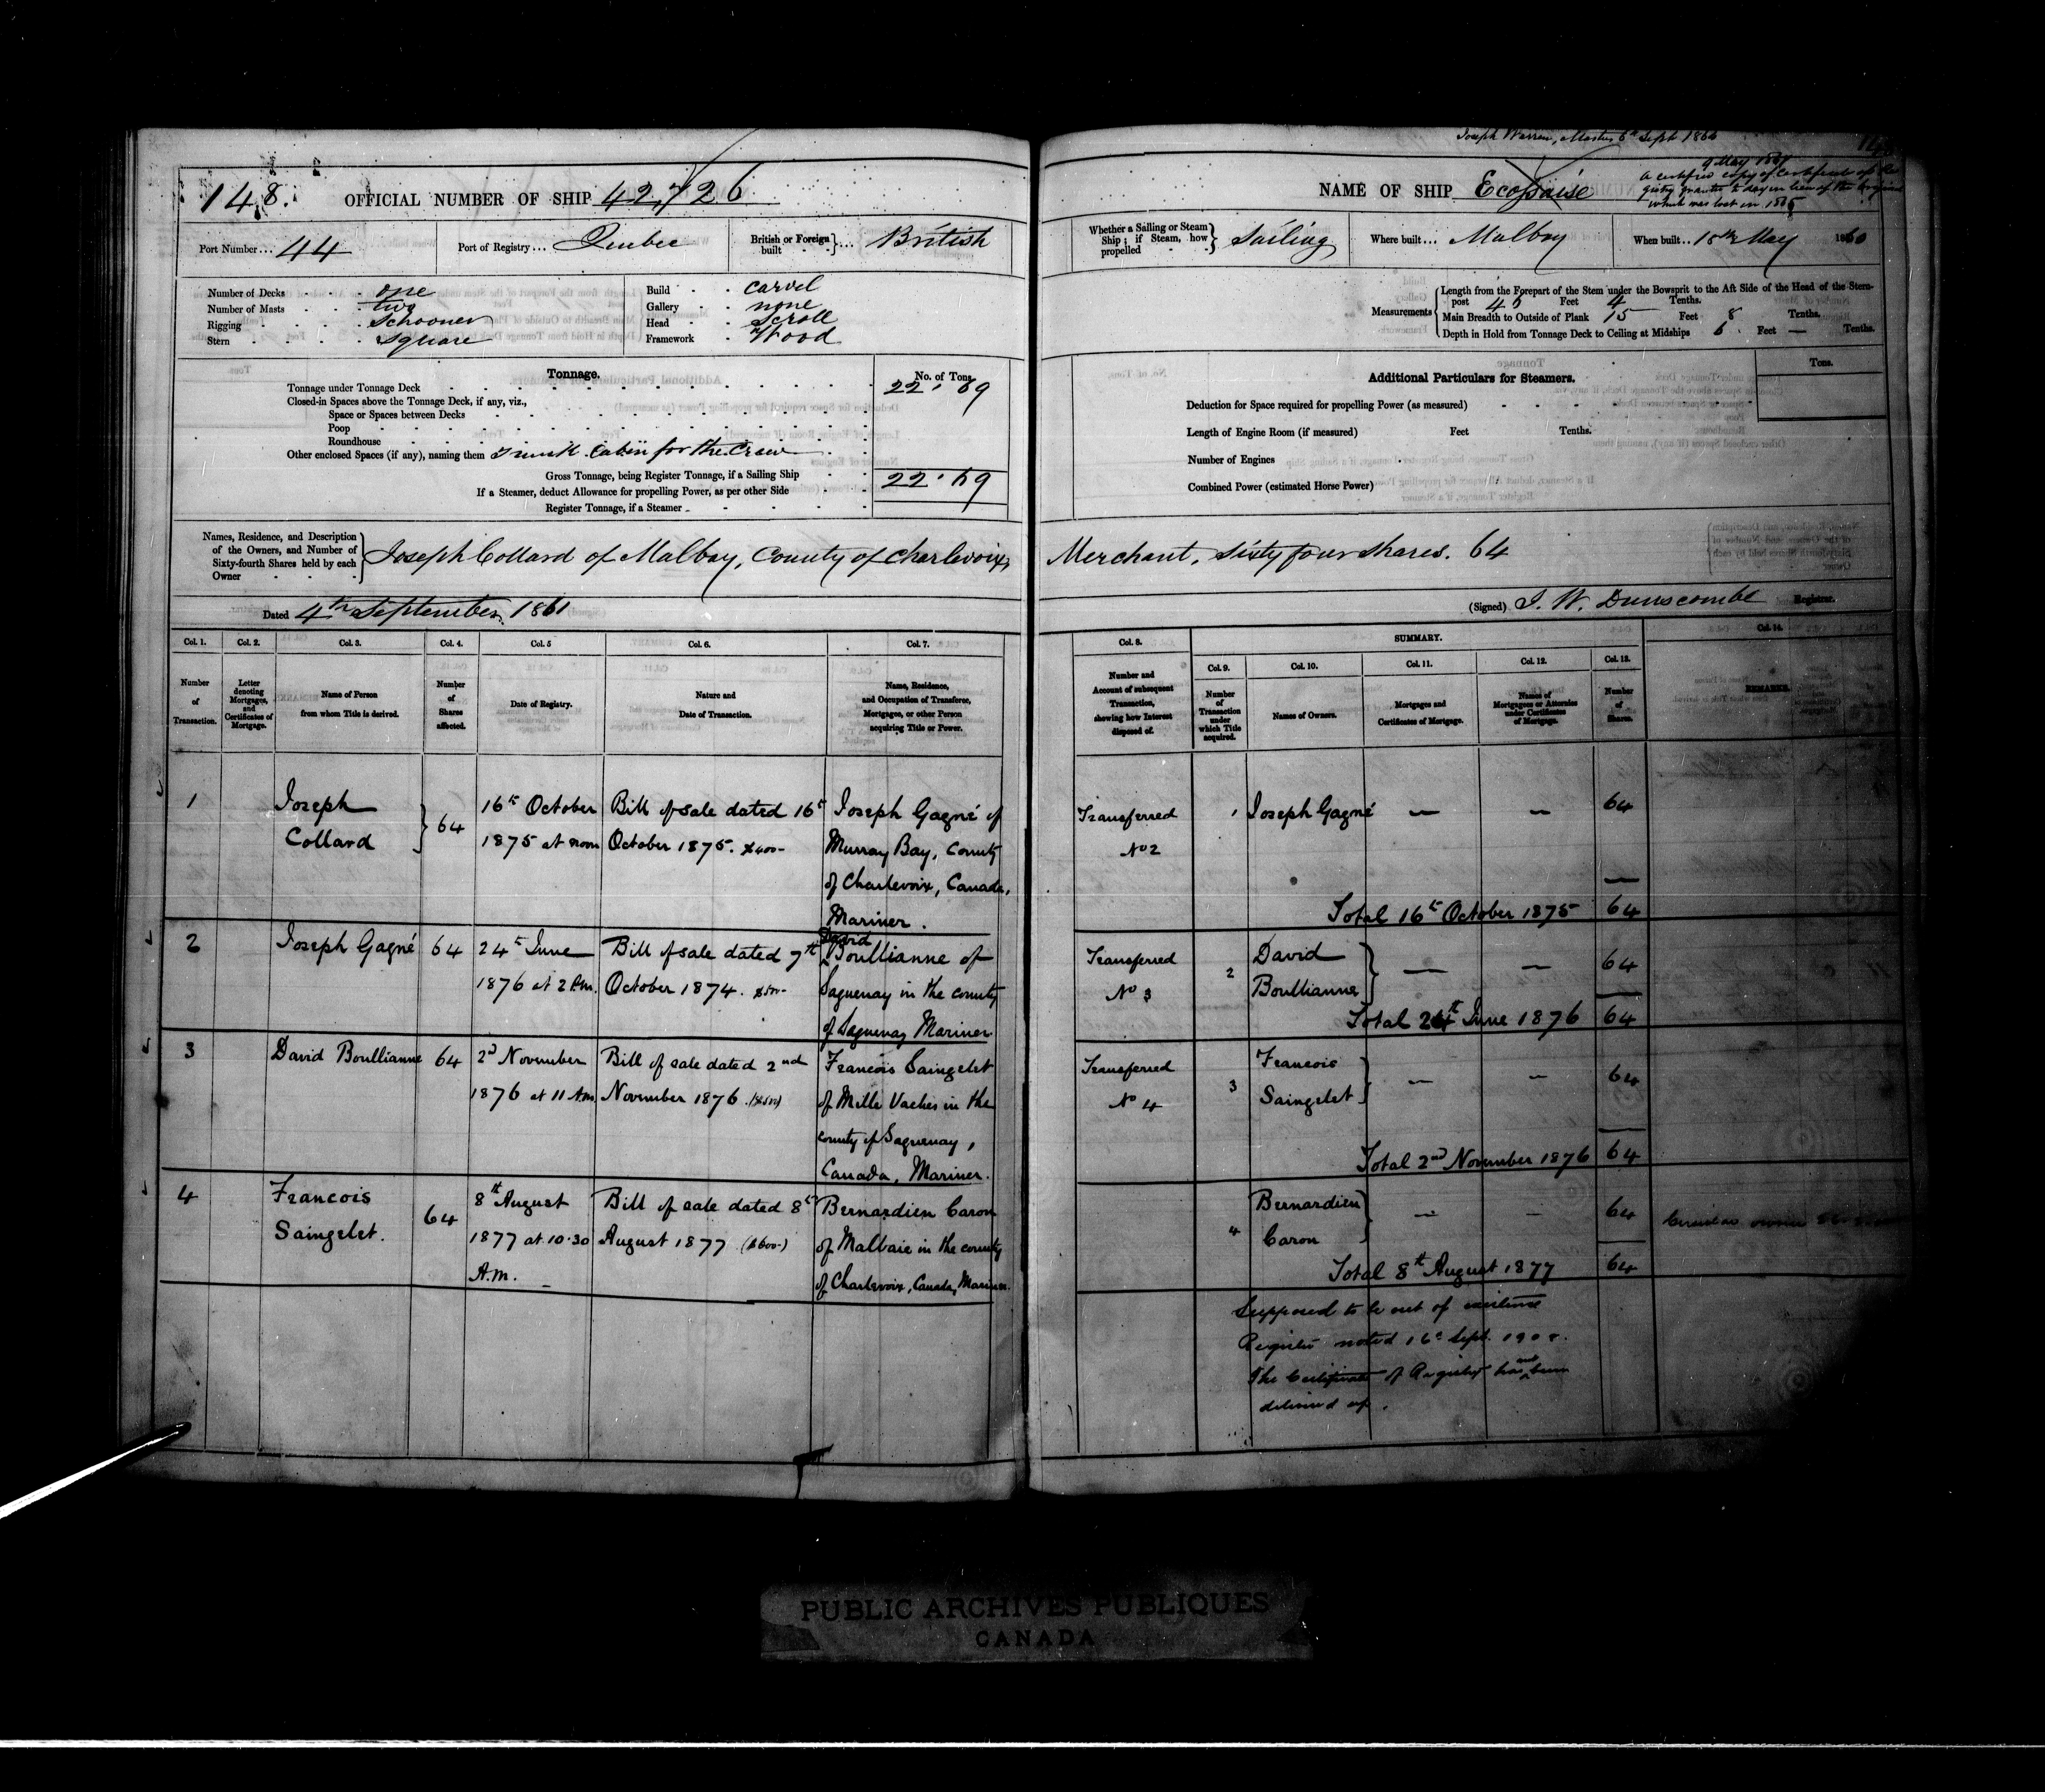 Joseph Warren, Master 6th Sept 1866
9 May 1867
a certified copy of certificate of Re
gistry granted to day in lieu of the original
which was lost in 1865
148. OFFICIAL NUMBER OF SHIP 42,726
NAME OF SHIP Ecossaise
Port Number... 44 Port of Registry... Quebec British or Foreign built } ... British
Whether a Sailing or Steam Ship; if Steam, how propelled } Sailing Where built... Malbay When built.. 18th May 1860
Number of Decks one
Number of Masts two
Rigging Schooner
Stern square
Build carvel
Gallery none
Head Scroll
Framework Wood
Measurements
Length from the Forepart of the Stem under the Bowsprit to the Aft Side of the Head of the Stern-
post Feet 4 Tenths.
Main Breadth to Outside of Plank 15 Feet 8 Tenths.
Depth in Hold from Tonnage Deck to Ceiling at Midships 6 Feet — Tenths.
Tonnage. No. of Tons.
Tonnage under Tonnage Deck 22.69
Closed-in Spaces above the Tonnage Deck, if any, viz.,
Space or Spaces between Decks
Poop
Roundhouse
Other enclosed Spaces (if any), naming them Trunk Cabin for the Crew
Gross Tonnage, being Register Tonnage, if a Sailing Ship 22.69
If a Steamer, deduct Allowance for propelling Power, as per other Side
Register Tonnage, if a Steamer
Additional Particulars for Steamers. Tons.
Deduction for Space required for propelling Power (as measured)
Length of Engine Room (if measured) Feet Tenths.
Number of Engines
Combined Power (estimated Horse Power)
Names, Residence, and Description
of the Owners, and Number of
Sixty-fourth Shares held by each
Owner
Joseph Collard of Malbay, County of Charlevoix, Merchant, Sixty four shares. 64
Dated 4th September 1861
(Signed) J. W. Dunscombe Registrar.
Col. 1. Col. 2. Col. 3. Col. 4. Col. 5 Col. 6. Col. 7.
Number of Transaction.
Letter denoting Mortgages, and Certificates of Mortgage.
Name of Person from whom Title is derived.
Number of Shares affected.
Date of Registry.
Nature and Date of Transaction.
Name, Residence, and Occupation of Transferee, Mortgagee, or other Person acquiring Title or Power.
1
Joseph
Collard
64
16th October
1875 at noon
Bill of sale dated 16th
October 1875. $400-
Joseph Gagné of
Murray Bay, County
of Charlevoix, Canada,
Mariner.
2
Joseph Gagné
64
24th June
1876 at 2 P.m.
Bill of sale dated 7th
October 1874. $500-
David
Boullianne of
Saguenay in the county
of Saguenay Mariner
3
David Boullianne
64
2d November
1876 at 11 A.m.
Bill of sale dated 2nd
November 1876. ($500)
Francois Saingelet
of Mille Vaches in the
county of Saguenay,
Canada, Mariner.
4
Francois
Saingelet.
64
8th August
1877 at 10.30
A.m.
Bill of sale dated 8th
August 1877 ($600-)
Bernardien Caron
of Malbaie in the county
of Charlevoix, Canada, Mariner.
Col. 8. SUMMARY. Col. 14.
Col. 9. Col. 10. Col. 11. Col. 12. Col. 13.
Number and Account of subsequent Transaction, showing how Interest disposed of.
Number of Transaction under which Title acquired.
Names of Owners.
Mortgages and Certificates of Mortgage.
Names of Mortgagees or Attornies under Certificates of Mortgage.
Number of Shares.
REMARKS.
Transferred
No 2
1 Joseph Gagné — — 64
Total 16th October 1875 64
Transferred
No 3
2 David
Boullianne — — 64
Total 24th June 1876 64
Transferred
No 4
3 Francois
Saingelet — — 64
Total 2nd November 1876 64
4 Bernardien
Caron — — 64
owner
Total 8th August 1877 64
Supposed to be out of existence
Register noted 16th Sept.
The Certificate of Registry has not been
delivered up.
PUBLIC ARCHIVES PUBLIQUES
CANADA